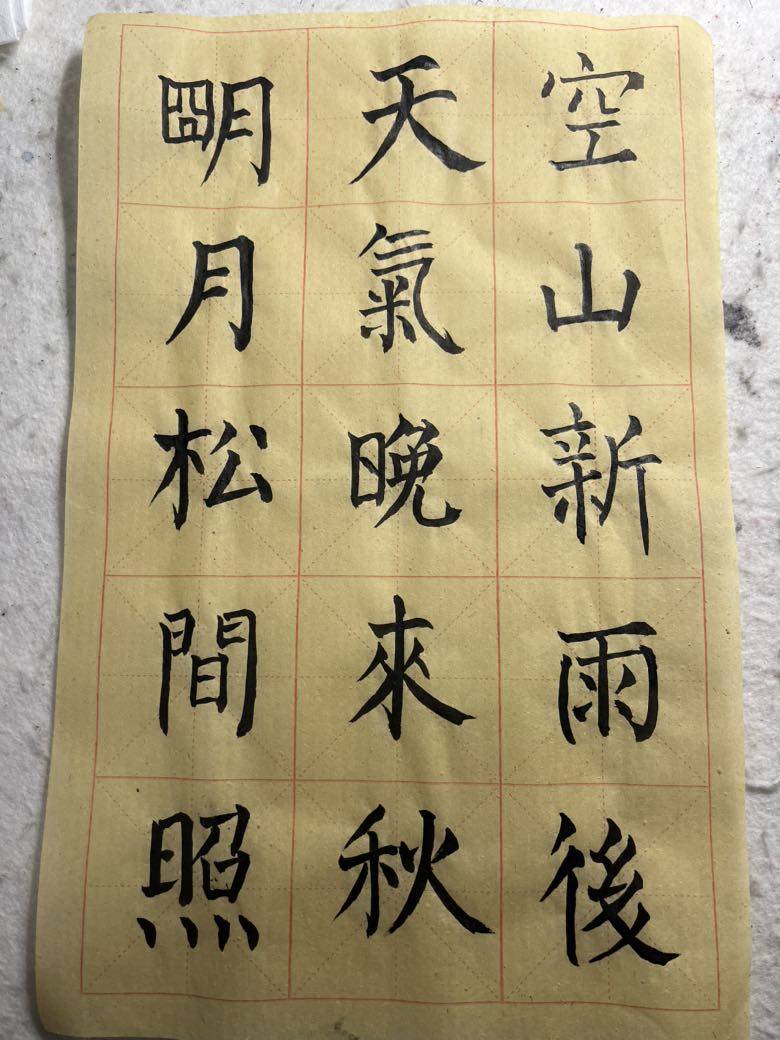 空山新雨後
天氣晚來秋
朙月松間照